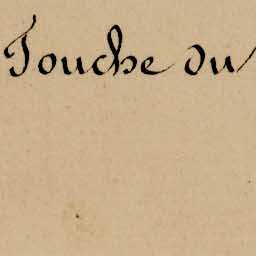 Touche du